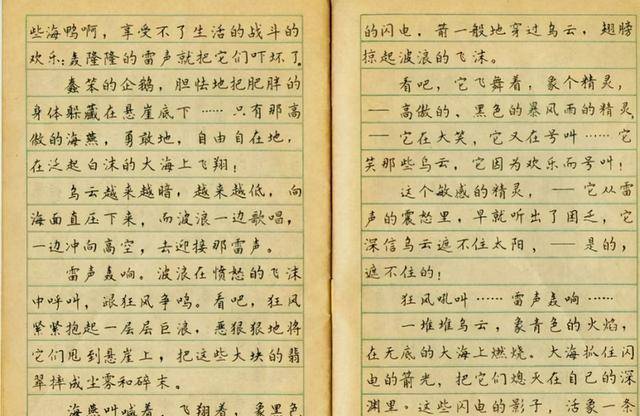 些海鸭啊，享受不了生活的战斗的
欢乐：轰隆隆的雷声就把它们吓坏了
蠢笨的企鹅，胆怯地把肥胖的
身体躲藏在悬崖底下……只有那高
傲的海燕，勇敢地，自由自在地，
在泛起白沫的大海上飞翔！
乌云越来越暗，越来越低，向
海面直压下来，而波浪一边歌唱，
一边冲向高空，去迎接那雷声。
雷声轰响。波浪在愤怒的飞沫
中呼叫，跟狂风争鸣。看吧，狂风
紧紧抱起一层层巨浪，恶狠狠地将
它们甩到悬崖上，把这些大块的翡
翠摔成尘雾和碎末。
海燕叫喊着，飞翔着，象黑色
的闪电，箭一般地穿过乌云，翅膀
掠起波浪的飞沫。
看吧，它飞舞着，象个精灵，
——高傲的、黑色的暴风雨的精灵，
——它在大笑，它又在号叫……它
笑那些乌云，它因为欢乐而号叫！
这个敏感的精灵，——它从雷
声的震怒里，早就听出了困乏，它
深信乌云遮不住太阳，——是的，
遮不住的！
狂风吼叫……雷声轰响……
一堆堆乌云，象青色的火焰，
在无底的大海上燃烧。大海抓住闪
电的箭光，把它们熄灭在自己的深
渊里。这些闪电的影子，活象一条